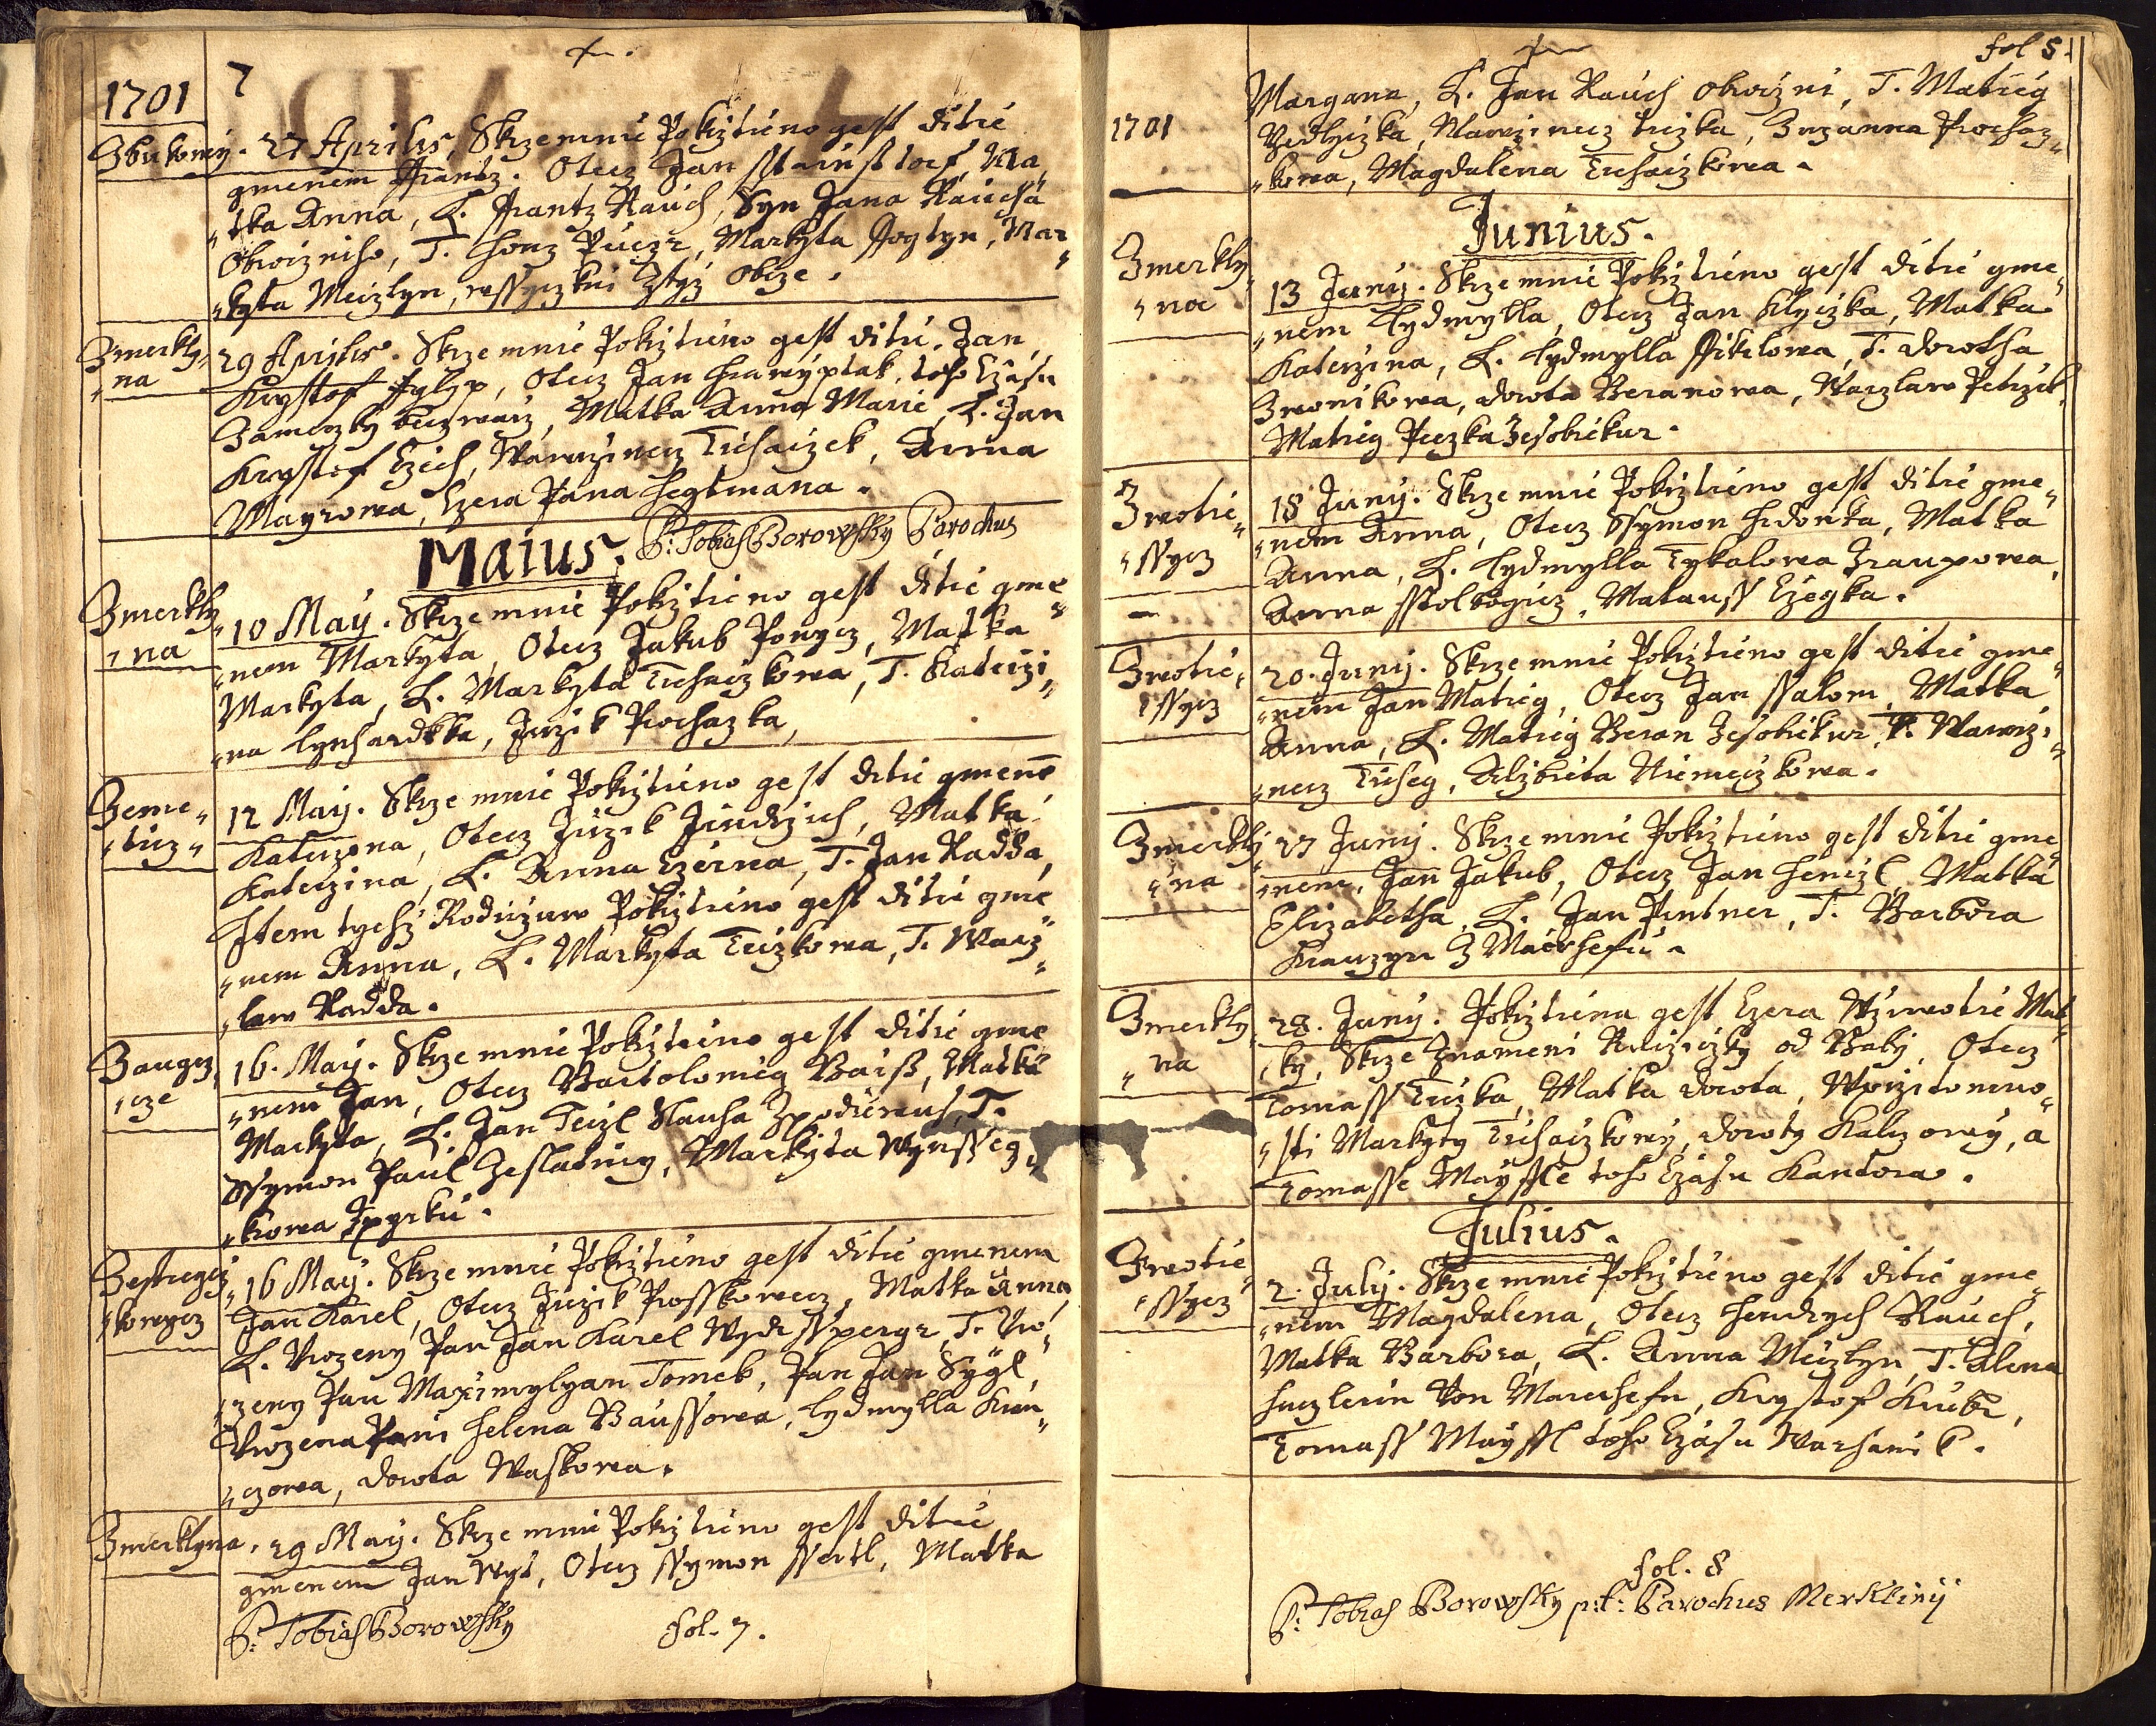 1701
7
Zbukowy. 27 Aprilis, Skrze mnie Pokrztieno gest ditie
gmenem Frantz. Otecz Jan Ma„
„tka Anna, L. Frantz Rauch, Syn Jana Rauchu
Obroczniho, T. Honz Markyta Mar„
„kyta Meizlyn, wssyczkni Ztyz Obcze.
Zmerkly„
„na
29 Aprilis. Skrze mnie Pokrztieno gest ditie. Jan
Krystof Fylyp, Otecz Jan toho Czasu
Zameczky Matka Anna Marie, L. Jan
Krystof Czech, Wawrzinecz Tichaczek, Anna
Mayrowa, Czera Pana Hegtmana.
Maius. P: Tobias Borowsky Parochus
Zmerkly
„na
10 May. Skrze mnie Pokrztieno gest ditie gme„
„nem Markyta, Otecz Jakub Matka
Markyta, L. Markyta Tichaczkowa, T. Katerzi„
„na Lynhardkka, Jirzik Prochazka,
Zeme„
„ticz„
12 May. Skrze mnie Pokrztieno gest ditie gmene
Katerzyna, Otecz Jirzik Jindrzich, Matka
Katerzina, L. Anna Czerna, T. Jan Radda,
Item tychz Rodiczuw Pokrztieno gest ditie gme„
„nem Anna, L. Markyta Teczkowa, T. Wacz„
„law Radda.
Zaugez„
„cze
16. May. Skrze mnie Pokrztieno gest ditie gme„
„nem Jan, Otecz Bartolomieg Baiß, Matka
Markyta, L. Jan Teizl T.
Ssymon Paul Zeslatiny, Markyta
„kowa
Zestregcz„
„kowycz
16 May. Skrze mnie Pokrztieno gest ditie gmenem
Jan Karel, Otecz Jirzik Prosskowecz, Matka Anna,
L. Urozeny Pan Jan Karel T. Uro„
„zeny Pan Maximylyan Tomek, Pan Jan Sygl,
Urozena Pani Helena Baussowa, Lydmylla
„czowa, Dorota Waskowa.
Zmerklyna.
29 May. Skrze mnie Pokrztieno gest ditie
gmenem Jan Wyt, Otecz Ssymon Ssertl, Matka
P: Tobias Borowsky
fol. 7.
fol 5.
1701
Margana, L. Jan Rauch Obroczni, T. Matieg
Wawrzinecz Zuzanna Prochaz„
„kowa, Magdalena Tichaczkowa.
Junius.
Zmerkly„
„na
13 Juny. Skrze mnie Pokrztieno gest ditie gme„
„nem Lydmylla, Otecz Jan Klyczka, Matka
Katerzina, L. Lydmylla Fikrlowa, T. Dorotha
Zwonikowa, Dorota Beranowa, Waczlaw Petrzik,
Matieg Peczka Zesobiekur.
Zwotie„
„ssycz
18 Juny. Skrze mnie Pokrztieno gest ditie gme„
„nem Anna, Otecz Ssymon Matka
Anna, L. Lydmylla Tykalowa
Anna Matauss Czegka.
Zwotie„
„ssycz
20. Juny. Skrze mnie Pokrztieno gest ditie gme„
„nem Jan Matieg, Otecz Jan Ssalom, Matka
Anna, L. Matieg Beran Zesobiekur, T. Wawrzi„
„necz Tichey, Alzbieta Niemeczkowa.
Zmerkly
„na
27 Juny. Skrze mnie Pokrztieno gest ditie gme„
„nem, Jan Jakub, Otecz Jan Henizl, Matka
Elizabetha, L. Jan Pintner, T. Barbora
Z
Zmerkly„
„na
28. Juny. Pokrztiena gest Czera Wziwotie Mat„
„ky, Skrze Znameni Ruczicky od Baby, Otecz
Tomass Matka Dorota, Wprzitomno„
„sti Markyty Tichaczkowy, Doroty Kalczowy, a
Tomasse Mayssle toho Czasu Kantora.
Julius.
Zwotie„
„ssycz
2. July. Skrze mnie Pokrztieno gest ditie gme„
„nem Magdalena, Otecz Hendrych Rauch,
Matka Barbora, L. Anna Meizlyn, T. Alena
Von Krystof
Tomass Mayssl toho Czasu Warhanik.
fol. 8
P: Tobias Borowsky p:t: Parochus Merkliny